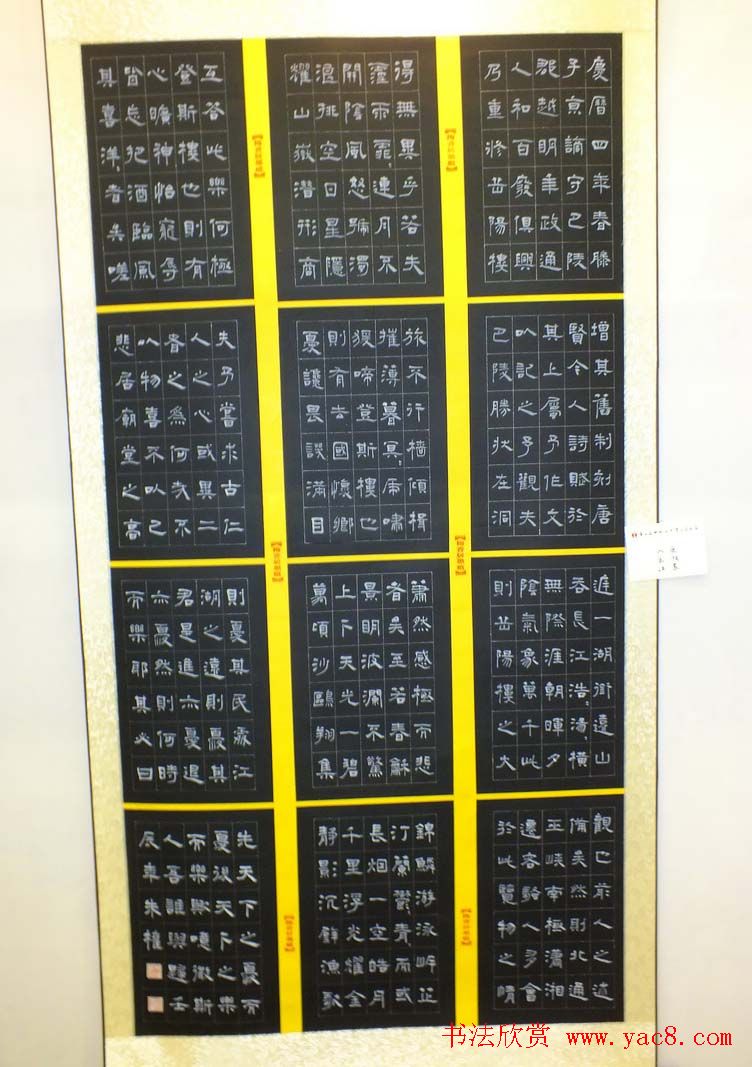 慶曆四年春滕
子京謫守巴陵
郡越明年政通
人和百廢俱興
乃重修岳陽樓
增其舊制刻唐
賢今人詩賦於
其上屬予作文
以記之予觀夫
巴陵勝狀在洞
庭一湖銜遠山
吞長江浩〻湯〻橫
無際涯朝暉夕
陰氣象萬千此
則岳陽樓之大
觀也前人之述
備矣然則北通
巫峽南極瀟湘
遷客騷人多會
於此覽物之情
得無異乎若夫
霪雨霏〻連月不
開陰風怒號濁
浪排空日星隱
耀山嶽潛形商
旅不行檣傾楫
摧薄暮冥〻虎嘯
猨啼登斯樓也
則有去國懷鄉
憂讒畏譏滿目
蕭然感極而悲
者矣至若春龢
景明波瀾不驚
上下天光一碧
萬頃沙鷗翔集
錦鱗游泳岸芷
汀蘭鬱青而或
長烟一空皓月
千里浮光耀金
靜影沉璧漁歌
互答此樂何極
登斯樓也則有
心曠神怡寵辱
皆忘把酒臨風
其喜洋〻者矣嗟
夫予嘗求古仁
人之心或異二
者之為何哉不
以物喜不以己
悲居廟堂之高
則憂其民處江
湖之遠則憂其
君是進亦憂退
亦憂然則何時
而樂耶其必曰
先天下之憂而
憂後天下之樂
而樂歟噫微斯
人吾誰與歸壬
辰年朱
书法欣赏 www.yac8.com